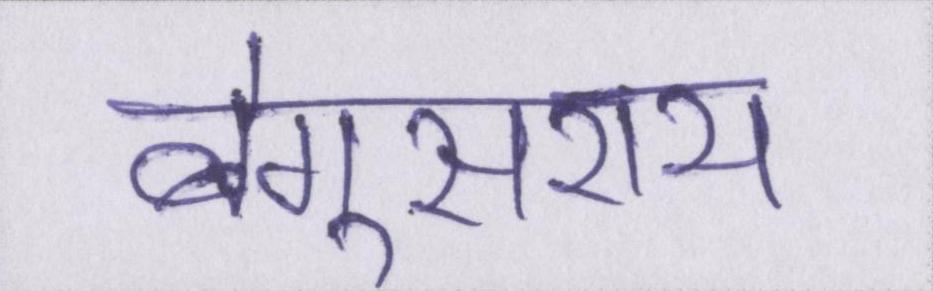 बेगुसराय